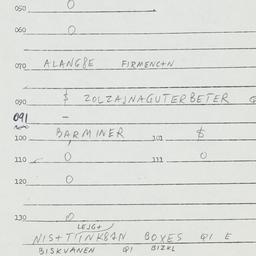 050 0
060 0
070 ALANG8E FIRMENC+N
090 $ ZOLZAJNAGUTERBETER
091 -
100 BARMINER 101 $
110 0 111 0
120 0
130 0
LEJG+
BOXES QI E
BISKVANEN QI BIZKL